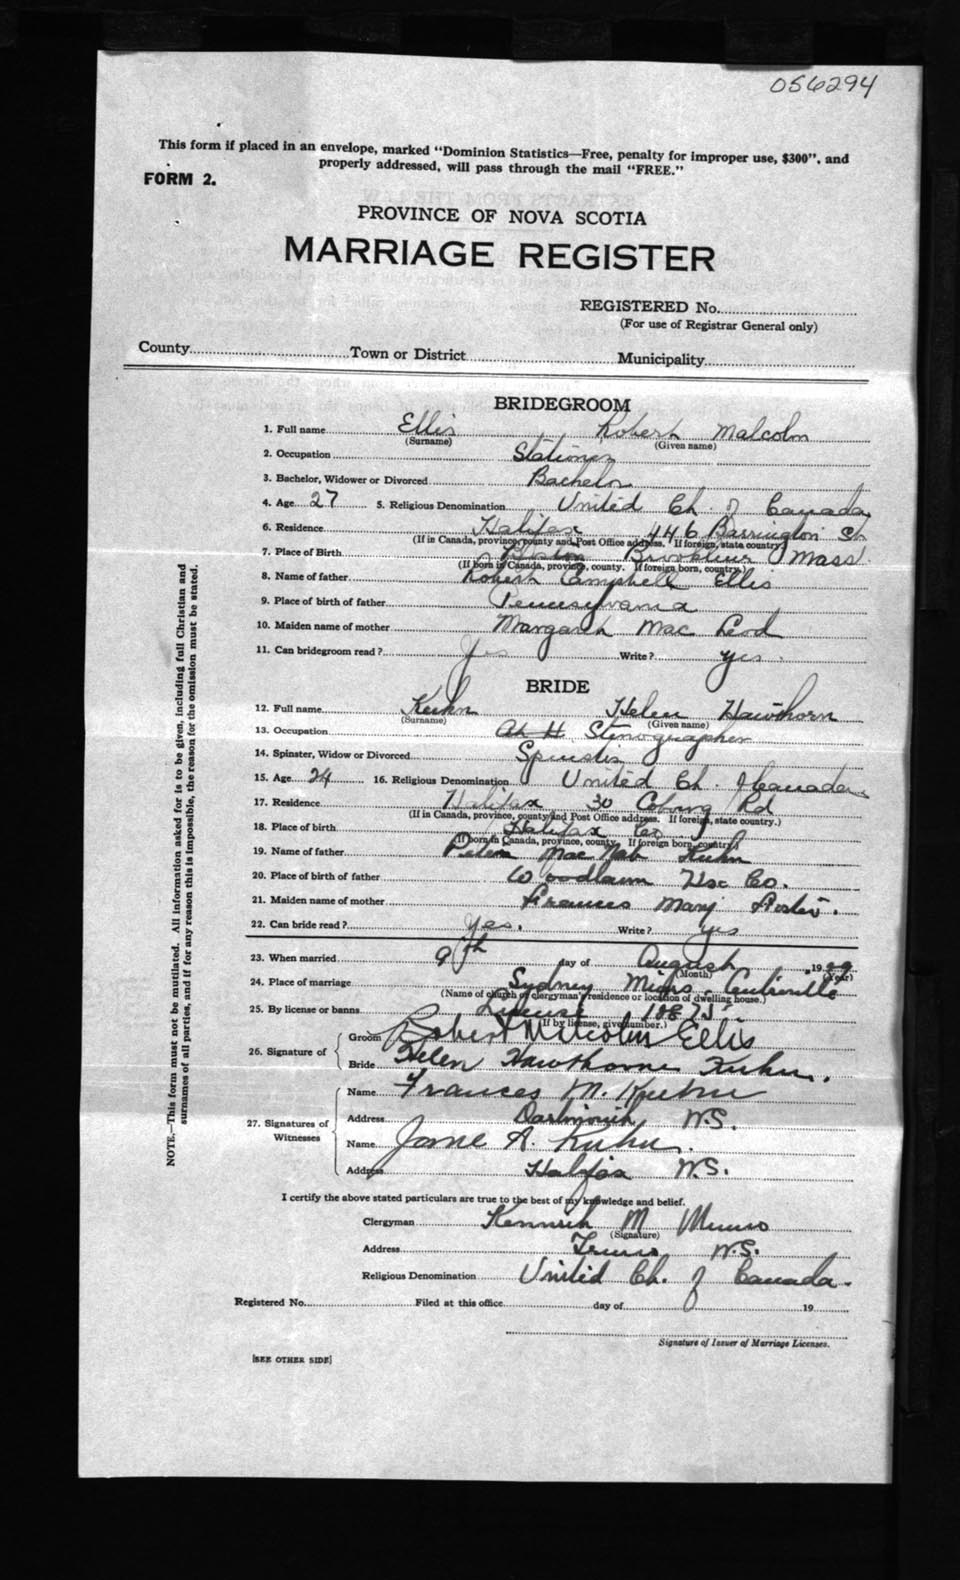 056294
This form if placed in an envelope, marked "Dominion Statistics—Free, penalty for improper use, $300", and
properly addressed, will pass through the mail "FREE."
FORM 2.
PROVINCE OF NOVA SCOTIA
MARRIAGE REGISTER
REGISTERED No.
(For use of Registrar General only)
County Town or District Municipality
BRIDEGROOM
1. Full name Ellis Robert Malcolm
(Surname) (Given name)
2. Occupation Stationer
3. Bachelor, Widower or Divorced Bachelor
4. Age 27 5. Religious Denomination United Ch. of Canada
6. Residence Halifax 446 Barrington St.
(If in Canada, province, county and Post Office address. If foreign, state country.)
7. Place of Birth Boston Brookline Mass.
(If born in Canada, province, county. If foreign born, country.)
8. Name of father Robert Campbell Ellis
9. Place of birth of father Pennsylvania
10. Maiden name of mother Margaret Mac Leod
11. Can bridegroom read? Yes Write? yes.
BRIDE
12. Full name Kuhn Helen Hawthorn
(Surname) (Given name)
13. Occupation At H Stenographer
14. Spinster, Widow or Divorced Spinster
15. Age 24 16. Religious Denomination United Ch. of Canada
17. Residence Halifax 30 Coburg Rd
(If in Canada, province, county and Post Office address. If foreign, state country.)
18. Place of birth Halifax Co
(If born in Canada, province, county. If foreign born, country.)
19. Name of father Peter Mac Nab Kuhn
20. Place of birth of father Woodlawn Hfx Co.
21. Maiden name of mother Frances Mary Foster.
22. Can bride read? Yes. Write? yes
23. When married 9th day of August 1929
(Month) (Year)
24. Place of marriage Sydney Mines, Centreville
(Name of church or clergyman's residence or location of dwelling house.)
25. By license or banns License 10875
(If by license, give number.)
26. Signature of Groom Robert Malcolm Ellis
Bride Helen Hawthorne Kuhn.
27. Signatures of Witnesses
Name Frances M. Kuhn
Address Dartmouth N.S.
Name Jane A. Kuhn.
Address Halifax N.S.
I certify the above stated particulars are true to the best of my knowledge and belief.
Clergyman Kenneth M Munro
(Signature)
Address Truro N.S.
Religious Denomination United Ch. of Canada.
Registered No. Filed at this office day of 19
Signature of Issuer of Marriage Licenses.
[SEE OTHER SIDE]
NOTE.—This form must not be mutilated. All information asked for is to be given, including full Christian and
surnames of all parties, and if for any reason this is impossible, the reason for the omission must be stated.